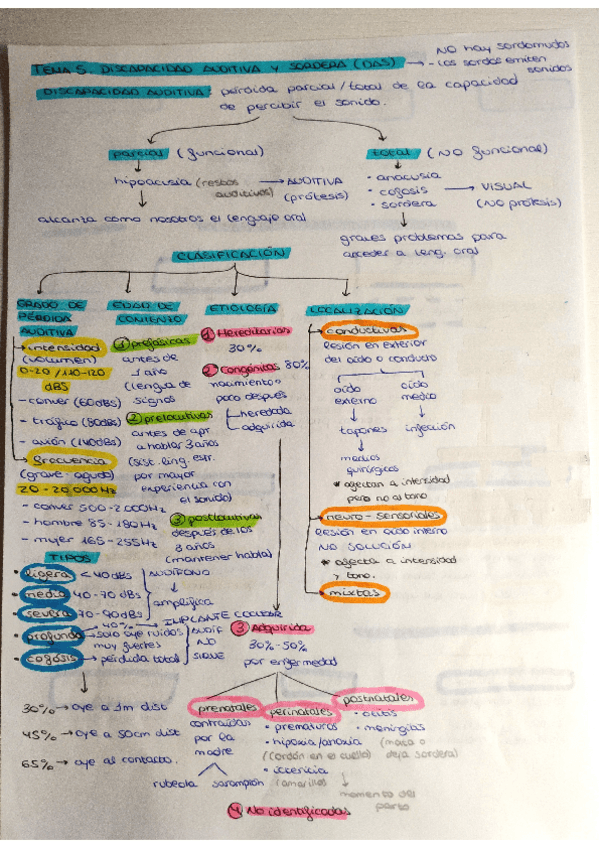 TEMA 5. DISCAPACIDAD AUDITIVA Y SORDERA (DAS) → NO hay sordomudos
- los sordos emiten sonidos
DISCAPACIDAD AUDITIVA: pérdida parcial/total de la capacidad
de percibir el sonido.
parcial (funcional)
hipoacusia (restos auditivos) → AUDITIVA (prótesis)
alcanza como nosotros el lenguaje oral
total (NO funcional)
• anacusia
• cofosis → VISUAL (NO prótesis)
• sordera
graves problemas para
acceder a leng. oral
CLASIFICACIÓN
GRADO DE
PÉRDIDA
AUDITIVA
intensidad
(volumen)
0-20 / 110-120
dBS
- conver (60dBS)
- tráfico (80dBS)
- avión (140dBS)
frecuencia
(grave - agudo)
20 - 20,000Hz
- conver 500-2000Hz
- hombre 85-180Hz
- mujer 165-255Hz
EDAD DE
COMIENZO
1 prefásicas
antes de
1 año
(lengua de
signos
2 prelocutivas
antes de apr.
a hablar 3 años
(sist. ling. estr.
por mayor
experiencia con
el sonido)
3 postlocutivas
después de los
3 años
(mantener habla)
ETIOLOGÍA
1 Hereditarias
30%
2 Congénitas 80%
nacimiento
poco después
heredada
adquirida
LOCALIZACIÓN
conductivas
lesión en exterior
del oído o conducto
oído
externo
↓
tapones
oído
medio
↓
infección
medios
quirúrgicos
* afectan a intensidad
pero no al tono
neuro-sensoriales
lesión en oído interno
NO SOLUCIÓN
* afecta a intensidad
y tono.
mixtas
TIPOS
• ligera < 40dBS
• media 40-70 dBS
• severa 70-90dBS
AUDÍFONO
↓
amplifica
• profunda → solo oye ruidos
muy fuertes
40% → IMPLANTE COCLEAR
• cofosis → pérdida total
AUDIF
NO
SIRVE
30% → oye a 1m dist
45% → oye a 50cm dist
65% → oye al contacto.
3 Adquirida
30%-50%
por enfermedad
prenatales
contraídas
por la
madre
rubeola sarampión
perinatales
• prematuros
• hipoxia/anoxia (mata o deja sordera)
(cordón en el cuello)
• ictericia
(amarillo)
momento del
parto
postnatales
• otitis
• meningitis
4 No identificadas